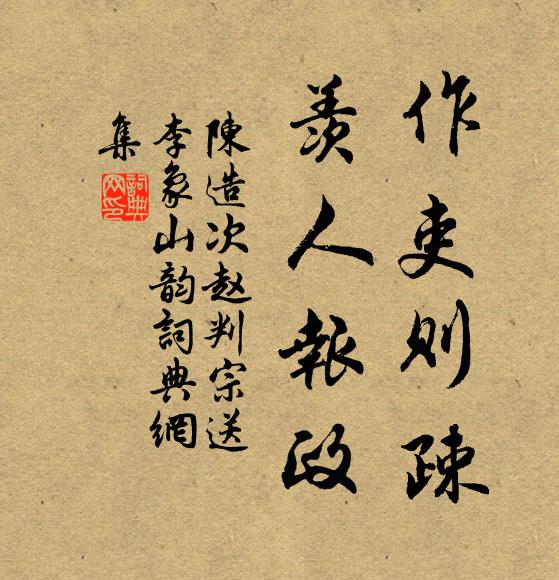 作吏则疎
羨人報政
陳造次赵判宗送
李象山韵詞典網
集
詞典
网印